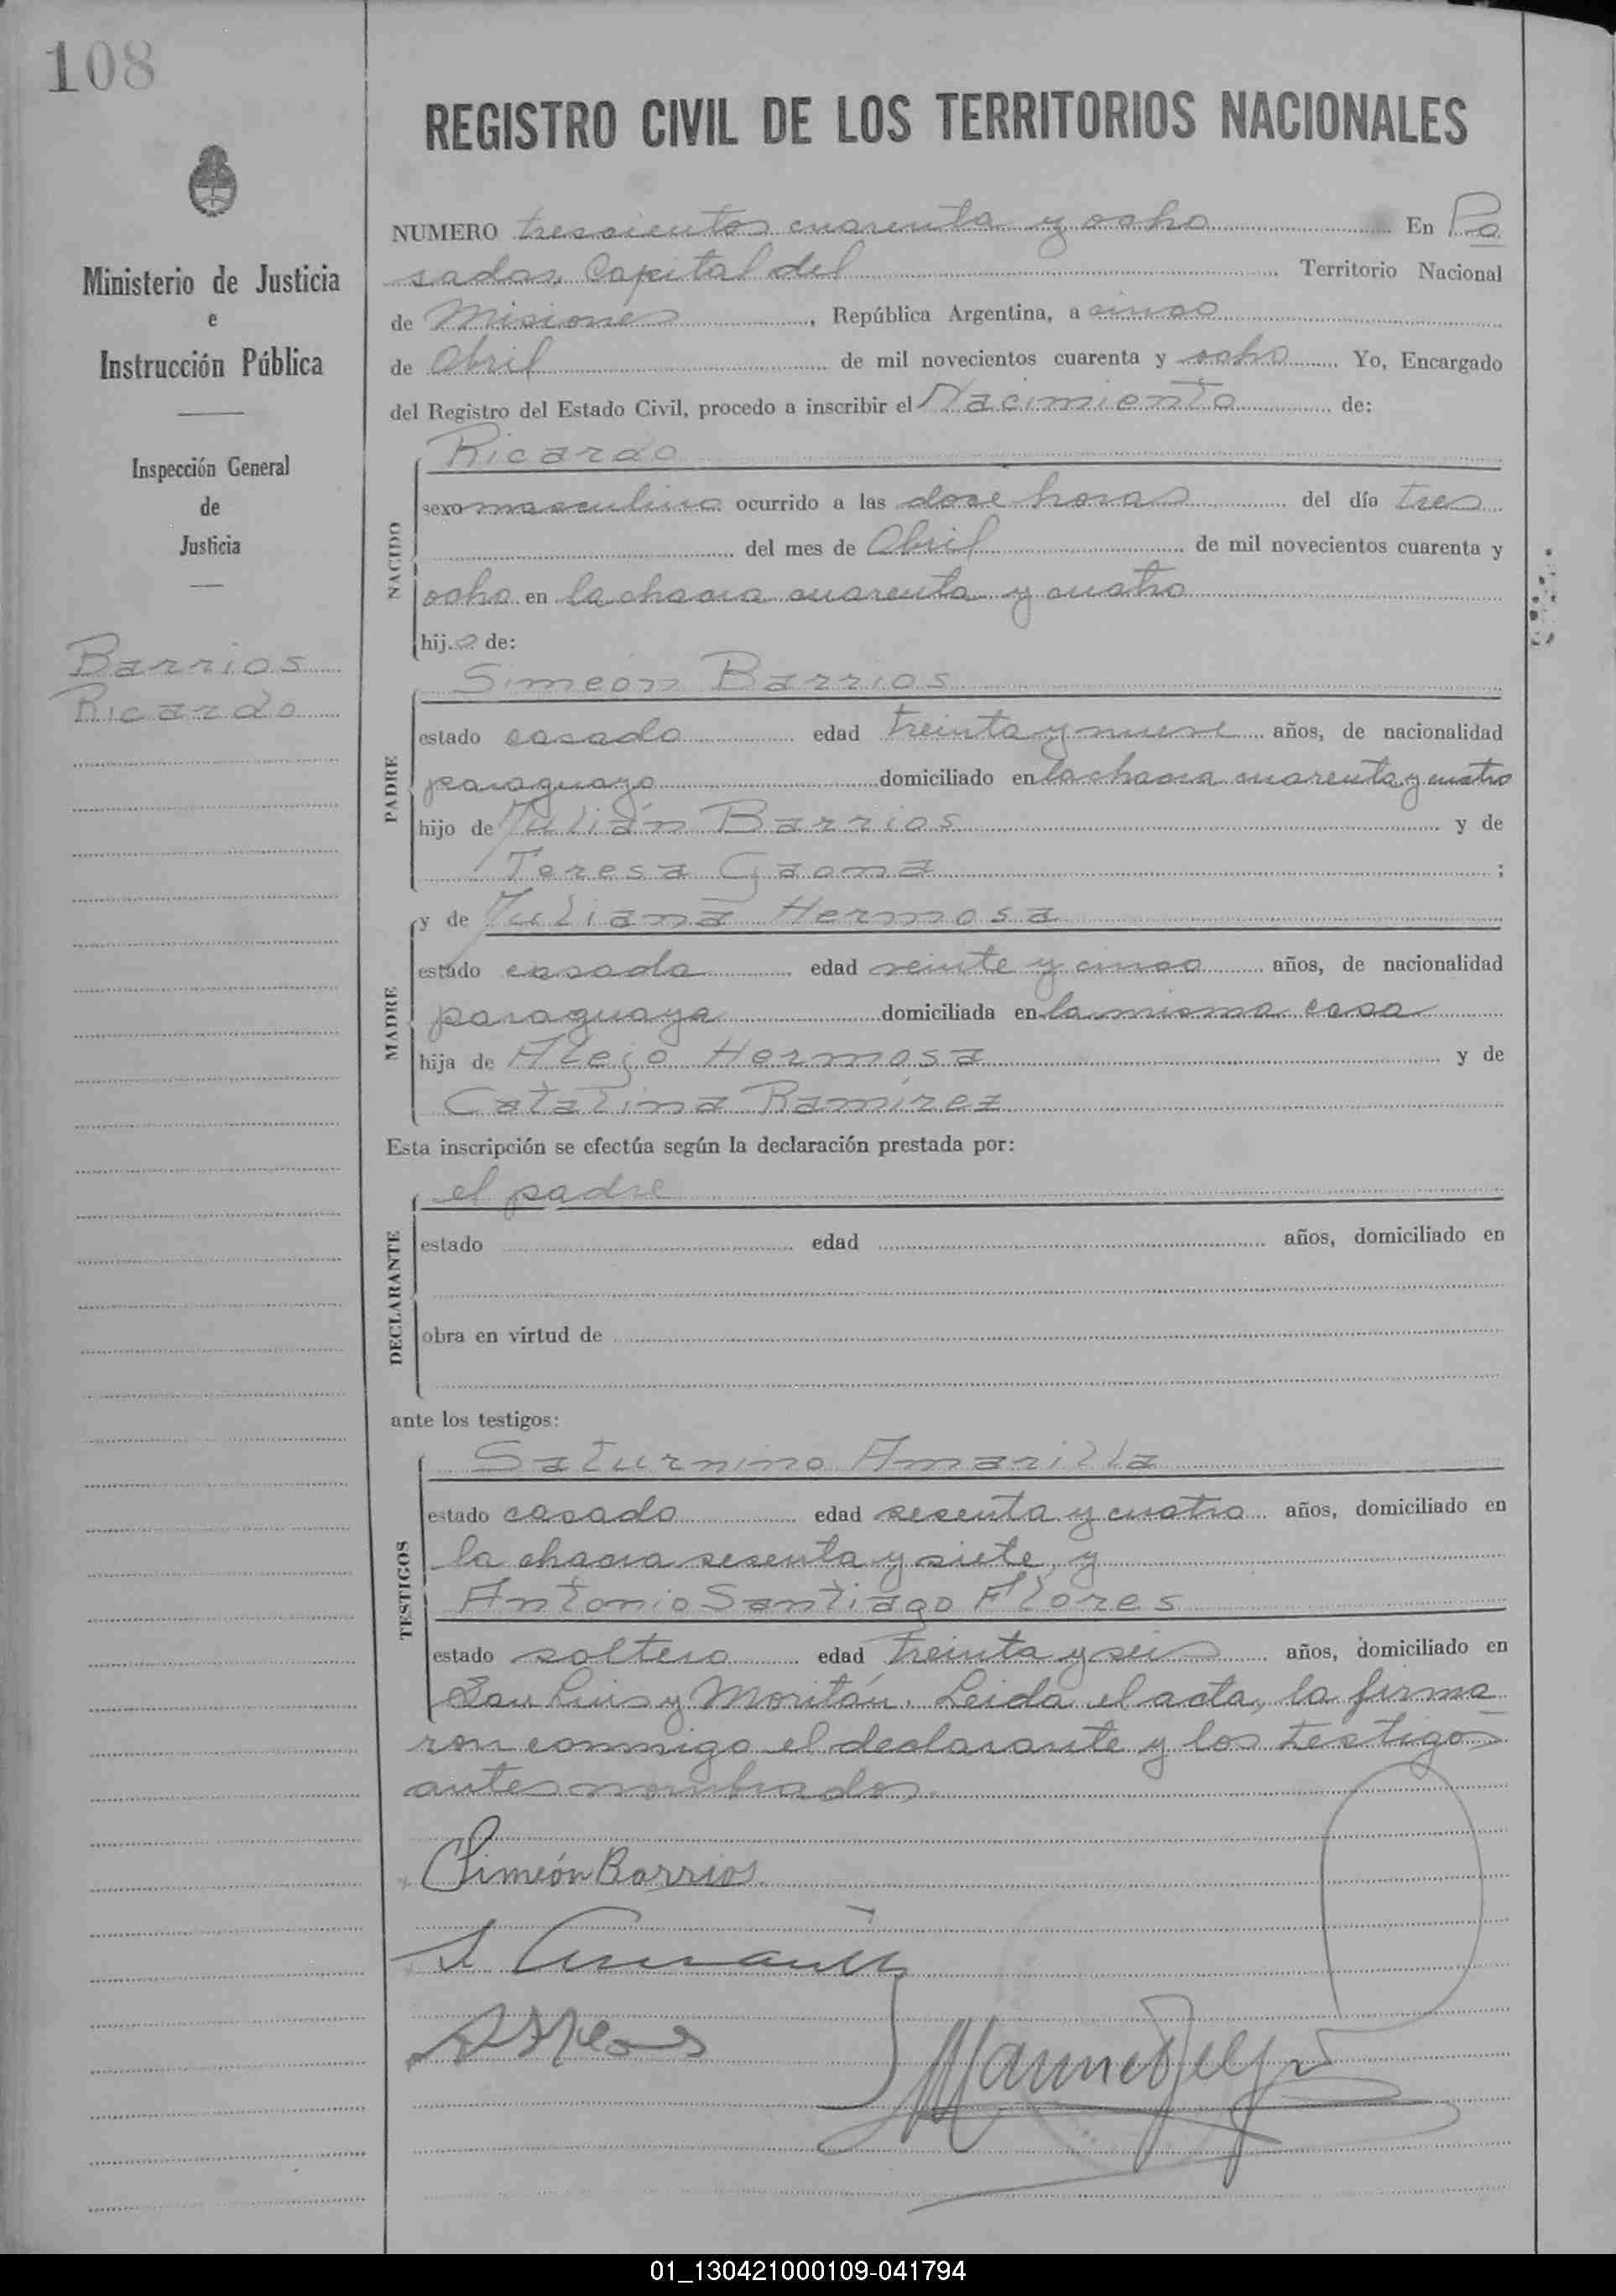 108
REGISTRO CIVIL DE LOS TERRITORIOS NACIONALES
Ministerio de Justicia
e
Instrucción Pública
Inspección General
de
Justicia
Barrios
Ricardo
NUMERO trescientos cuarenta y ocho En Po
sadas, Capital del Territorio Nacional
de Misiones, República Argentina, a cinco
de Abril de mil novecientos cuarenta y ocho Yo, Encargado
del Registro del Estado Civil, procedo a inscribir el Nacimiento de:
NACIDO
Ricardo
sexo masculino ocurrido a las doce horas del día tres
del mes de Abril de mil novecientos cuarenta y
ocho en la chacra cuarenta y cuatro
hijo de:
PADRE
Simeón Barrios
estado casado edad treinta y nueve años, de nacionalidad
paraguayo domiciliado en la chacra cuarenta y cuatro
hijo de Julián Barrios y de
Teresa Gaona ;
MADRE
y de Juliana Hermosa
estado casada edad veinte y cinco años, de nacionalidad
paraguaya domiciliada en la misma casa
hija de Alejo Hermosa y de
Catalina Ramírez
Esta inscripción se efectúa según la declaración prestada por:
DECLARANTE
el padre
estado edad años, domiciliado en
obra en virtud de
ante los testigos:
TESTIGOS
Saturnino Amarilla
estado casado edad sesenta y cuatro años, domiciliado en
la chacra sesenta y siete, y
Antonio Santiago Flores
estado soltero edad treinta y seis años, domiciliado en
San Luis y Moritán. Leida el acta, la firma
ron conmigo el declarante y los testigos
antes nombrados.
Simeón Barrios
01_130421000109-041794